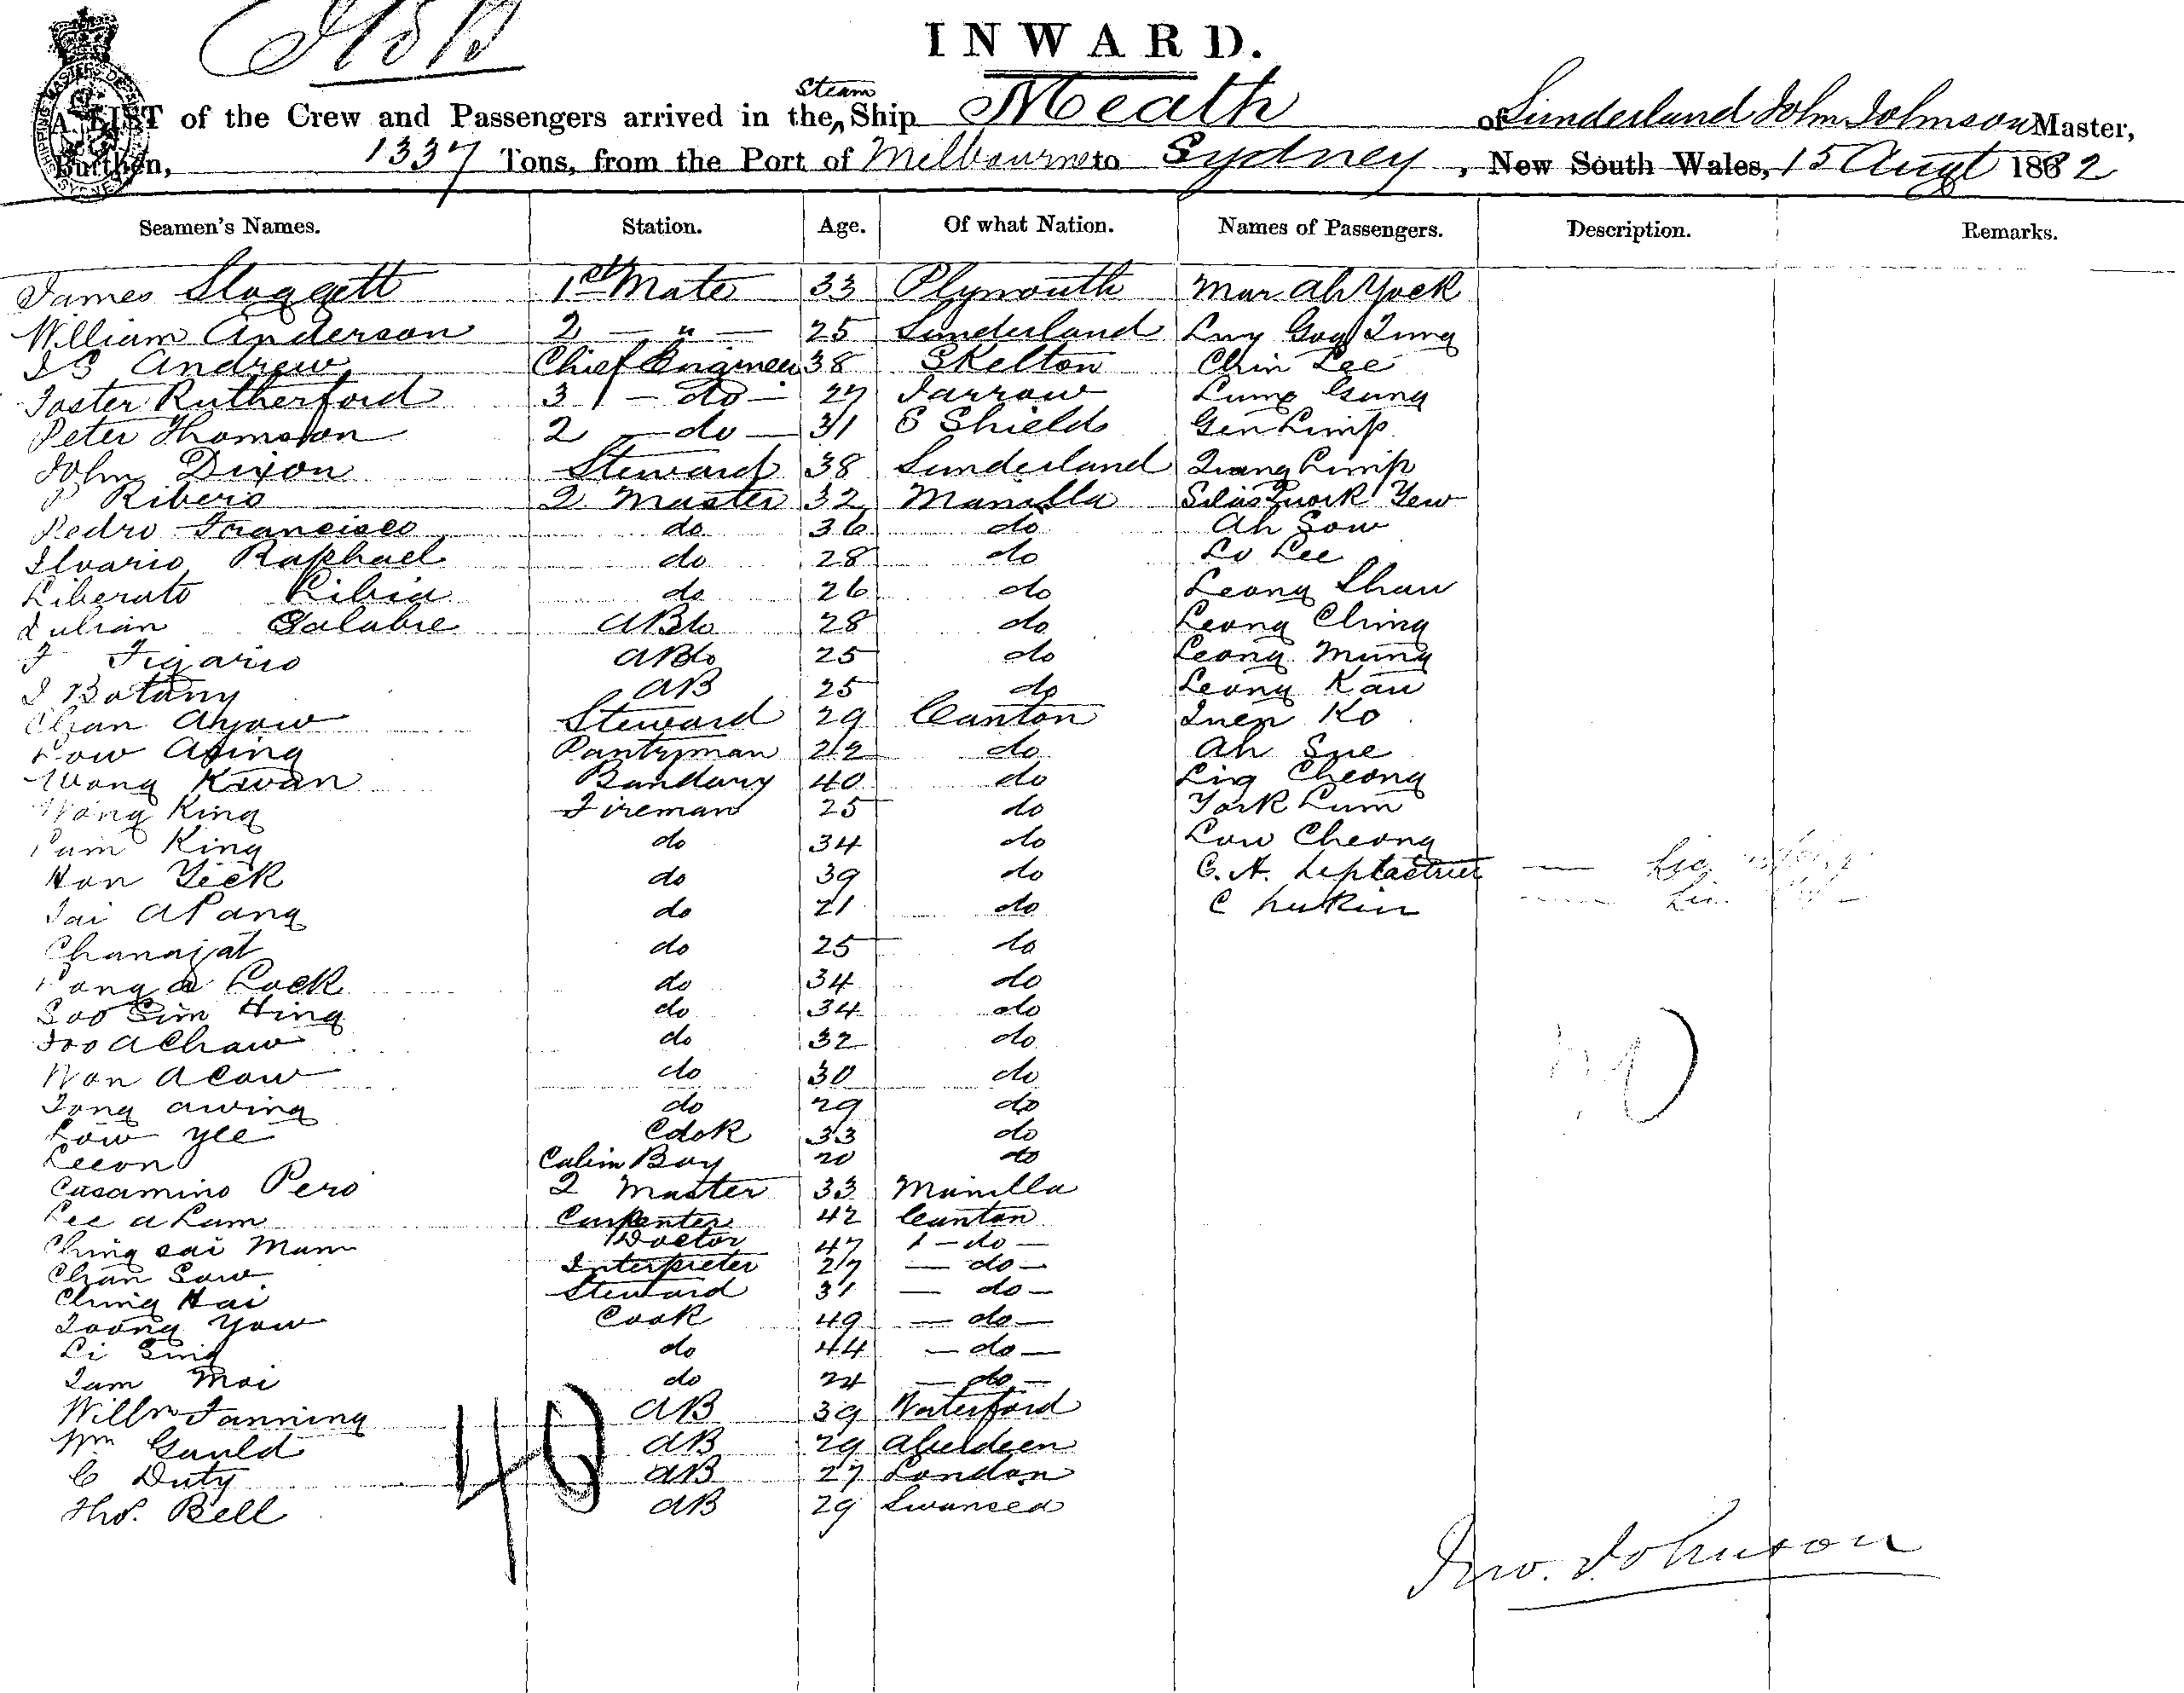 INWARD.
A LIST of the Crew and Passengers arrived in the Steam Ship Meath of Sunderland John Johnson Master,
Burthen, 1337 Tons, from the Port of Melbourne to Sydney, New South Wales, 15 Augt 1882
Seamen's Names. Station. Age. Of what Nation. Names of Passengers. Description. Remarks.
James Sloggett 1st Mate 33 Plymouth Mar Ah Yock
William Anderson 2 — " — 25 Sunderland
J G Andrew Chief Engineer 38 Skelton Chin Lee
Foster Rutherford 3 — do — 27 Jarrow Lump Gung
Peter Thomson 2 — do — 31 S Shields Gen Limp
John Dixon Steward 38 Sunderland Limp
P Ribero 2 Master 32 Manilla Yew
Pedro Francisco do 36 do Ah Sow
Ilvario Raphael do 28 do Lo Lee
Liberato Libia do 26 do Leong Shaw
Julian Salabie AB 28 do Leong Ching
F Figario AB 25 do Leong Mung
J Botany AB 25 do Leong Kau
Chan Ayow Steward 29 Canton Ko
Low Asing Pantryman 22 do Ah Sue
Wong Kwan Bandary 40 do Ling Cheong
Wong King Fireman 25 do York Lum
Lum King do 34 do Low Cheong
Hon Yick do 39 do C. A. —
Tai APang do 21 do C —
Chanajat do 25 do
a Lock do 34 do
Soo Sim Hing do 34 do
Foo AChaw do 32 do
Won Acow do 30 do
Tong Awing do 29 do
Low Yee Cook 33 do
Leeon Cabin Boy 20 do
Casamino Pero 2 Master 33 Manilla
Lee a Lam Carpenter 42 Canton
Ching sai Mum Doctor 47 — do —
Chan Saw Interpreter 27 — do —
Ching Hai Steward 31 — do —
Toong Yow Cook 49 — do —
Li Sing do 44 — do —
Tam Moi do 24 — do —
Willm Fanning AB 39 Waterford
Wm Gauld AB 29 Aberdeen
C Duty AB 27 London
Thos. Bell AB 29 Swansea
40
Jno. Johnson